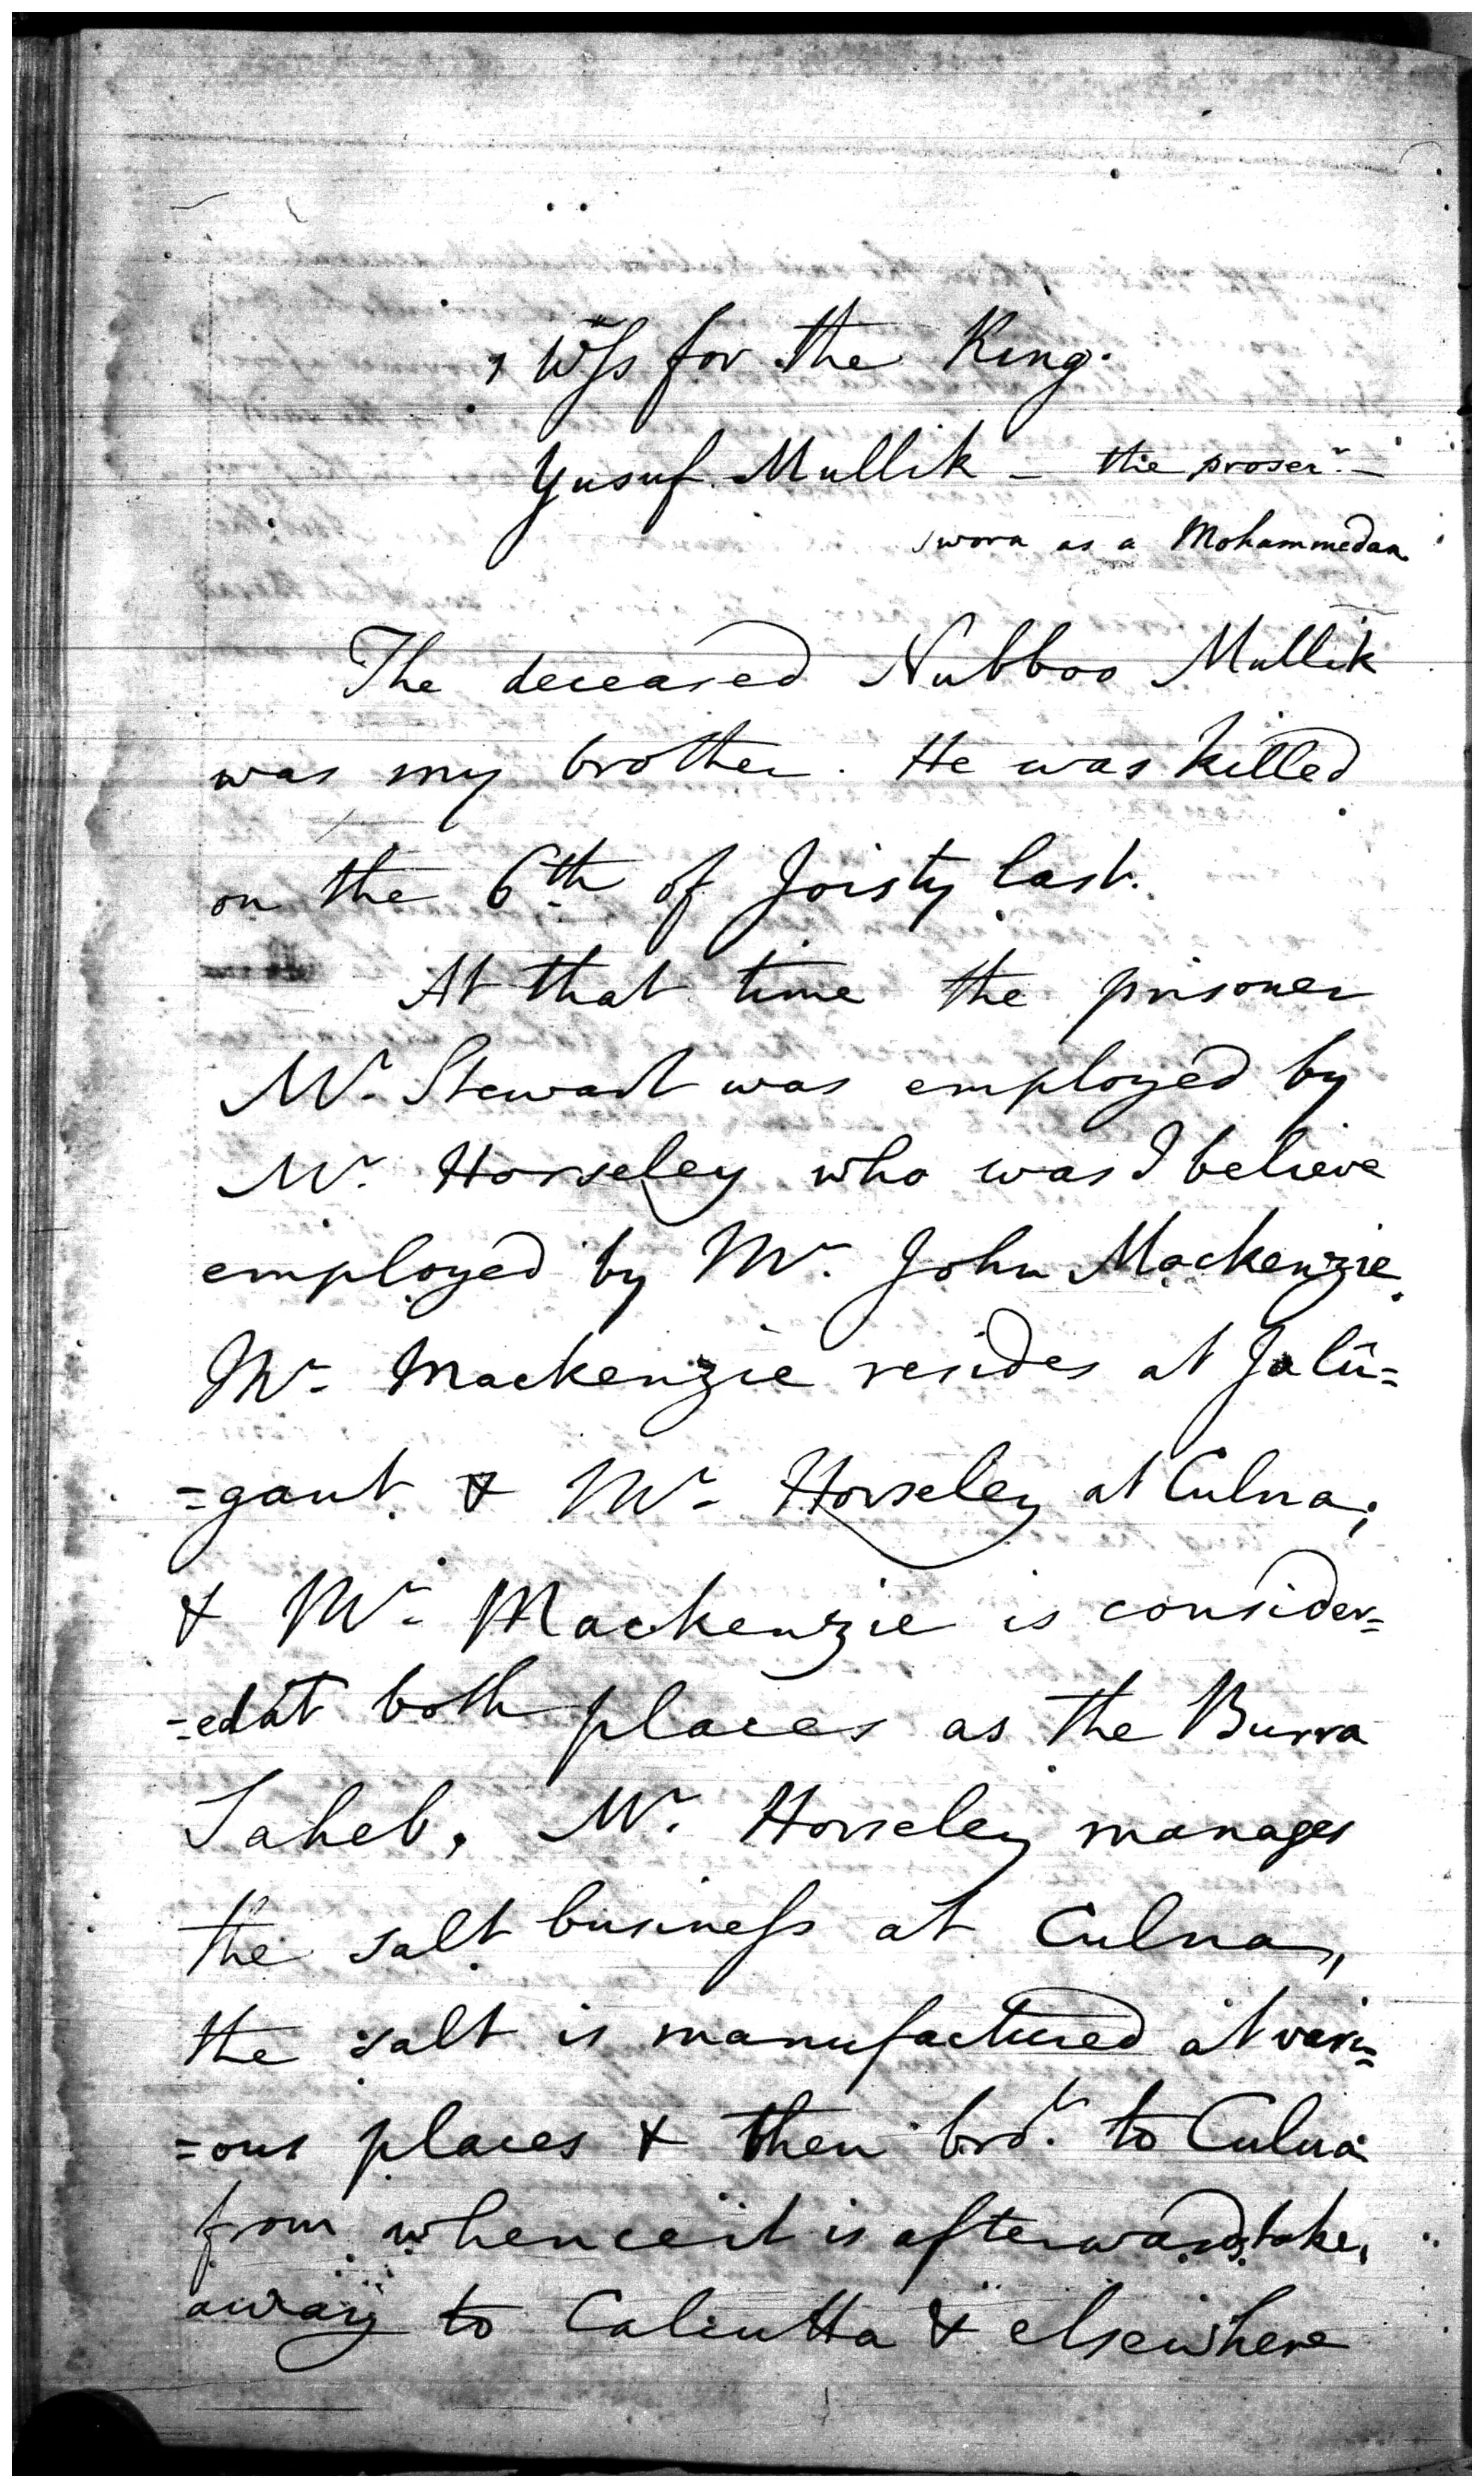 1 Wss for the King.
Yusuf Mullik - the proser. -
sworn as a Mohammedan
The deceased Nubboo Mullik
was my brother. He was killed
on the 6th of Joisty last.
At that time the prisoner
Mr. Stewart was employed by
Mr. Horseley who was I believe
employed by Mr. John Mackenzie.
Mr. Mackenzie resides at Jalû=
=gaut & Mr. Horseley at Culna;
& Mr. Mackenzie is consider=
=ed at both places as the Burra
Saheb. Mr. Horseley manages
the salt business at Culna,
the salt is manufactured at vari=
=ous places & then brot. to Culna
from whence it is afterwards taken
away to Calcutta & elsewhere